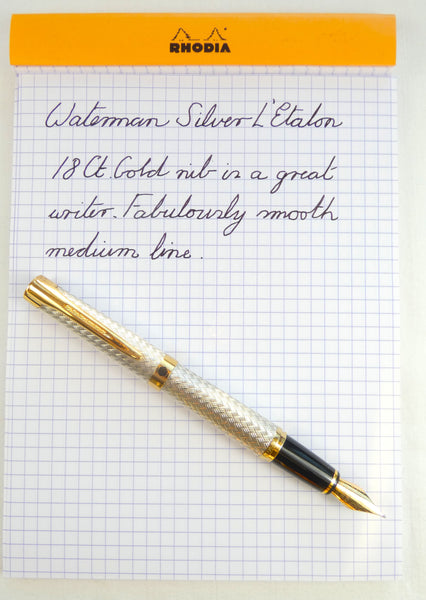 RHODIA
Waterman Silver L'Etalon
18Ct. Gold nib is a great
writer. Fabulously smooth
medium line.